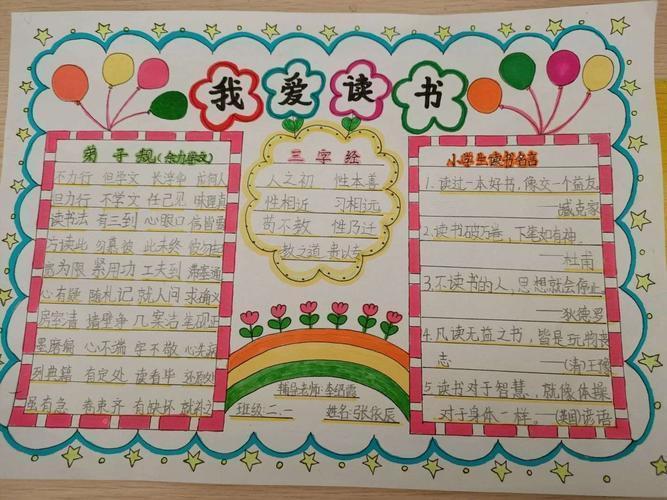 我爱读书
弟子规(余力学文)
不力行 但学文 长浮华 成何人
但力行 不学文 任己见 昧理真
读书法 有三到 心眼口 信皆要
方读此 勿慕彼 此未终 彼勿起
宽为限 紧用功 工夫到 滞塞通
心有疑 随札记 就人问 求确义
房室清 墙壁净 几案洁 笔砚正
墨磨偏 心不端 字不敬 心先病
列典籍 有定处 读看毕 还原处
虽有急 卷束齐 有缺坏 就补之
三字经
人之初 性本善
性相近 习相远
苟不教 性乃迁
教之道 贵以专
辅导老师:李绍霞
班级:二.二 姓名:张依辰
小学生读书名言
1.读过一本好书,像交一个益友
——臧克家
2.读书破万卷,下笔如有神
——杜甫
3.不读书的人,思想就会停止
——狄德罗
4.凡读无益之书,皆是玩物丧
志 ——(清)王豫
5.读书对于智慧,就像体操
对于身体一样。——(美国)谚语